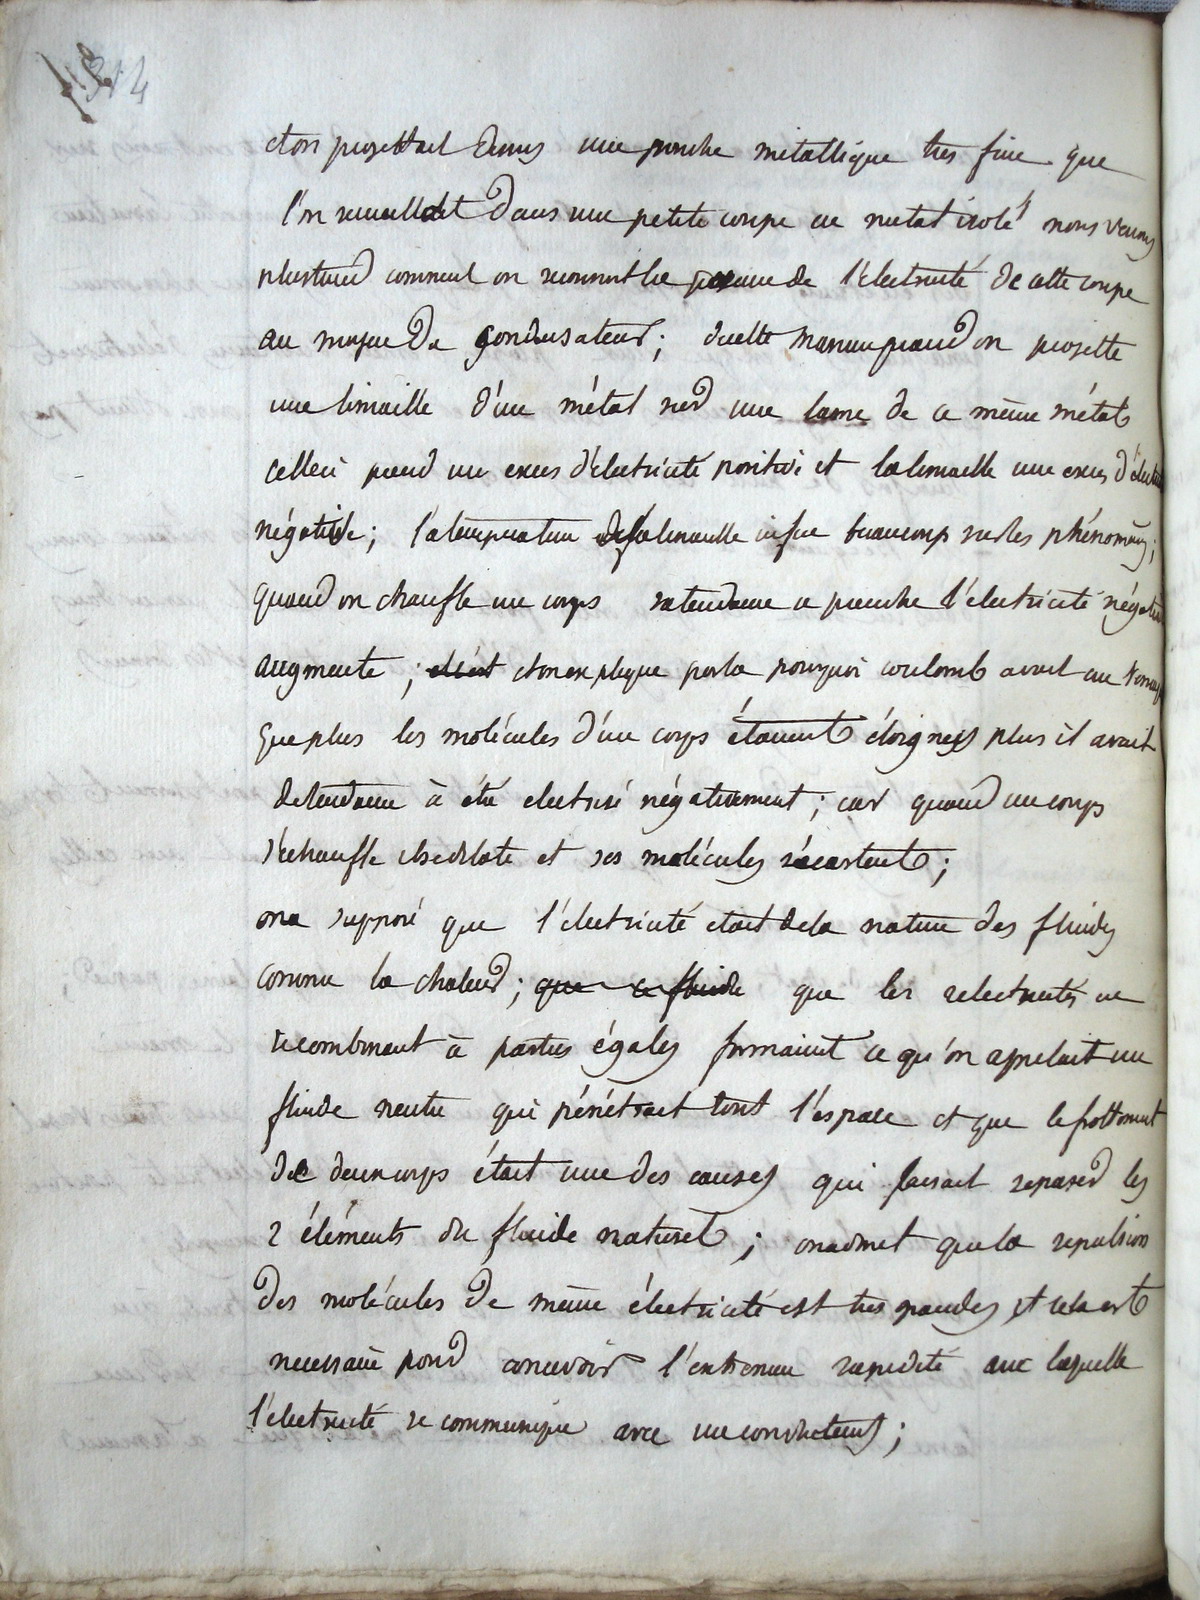 314
et on projettait dessus une poudre métallique tres fine que
l'on recueillait dans une petite coupe en metal isolé nous verrons
plustard comment on reconnut la presence de l'électricité de cette coupe
au moyen du condensateur; de cette maniere quand on projette
une limaille d'un métal sur une lame de ce même métal
celleci prend un exces d'électricité positive et la limaille une exces d'électricité
négative; la temperature de la limaille influe beaucoup sur les phénomènes;
quand on chauffe un corps sa tendance a prendre l'électricité négative
augmente; et on explique par la pourquoi coulomb avait cru
que plus les molécules d'un corps étaient éloignées plus il avait
de tendance à été electrisé négativement; car quand un corps
s'échauffe il se dilate et ses molécules s'écartent;
on a supposé que l'électricité etait de la nature des fluides
comme la chaleur; que ce fluide que les 2 electricités en
se combinant à parties égales formaient ce qu'on appelait un
fluide neutre qui pénétrait tout l'espace et que le frottement
de deux corps était une des causes qui faisait separer les
2 éléments du fluide naturel; on admet que la repulsion
des molécules de même électricité est tres grandes et cela est
necessaire pour concevoir l'extreme rapidité avec laquelle
l'électricité se communique avec un conducteur;